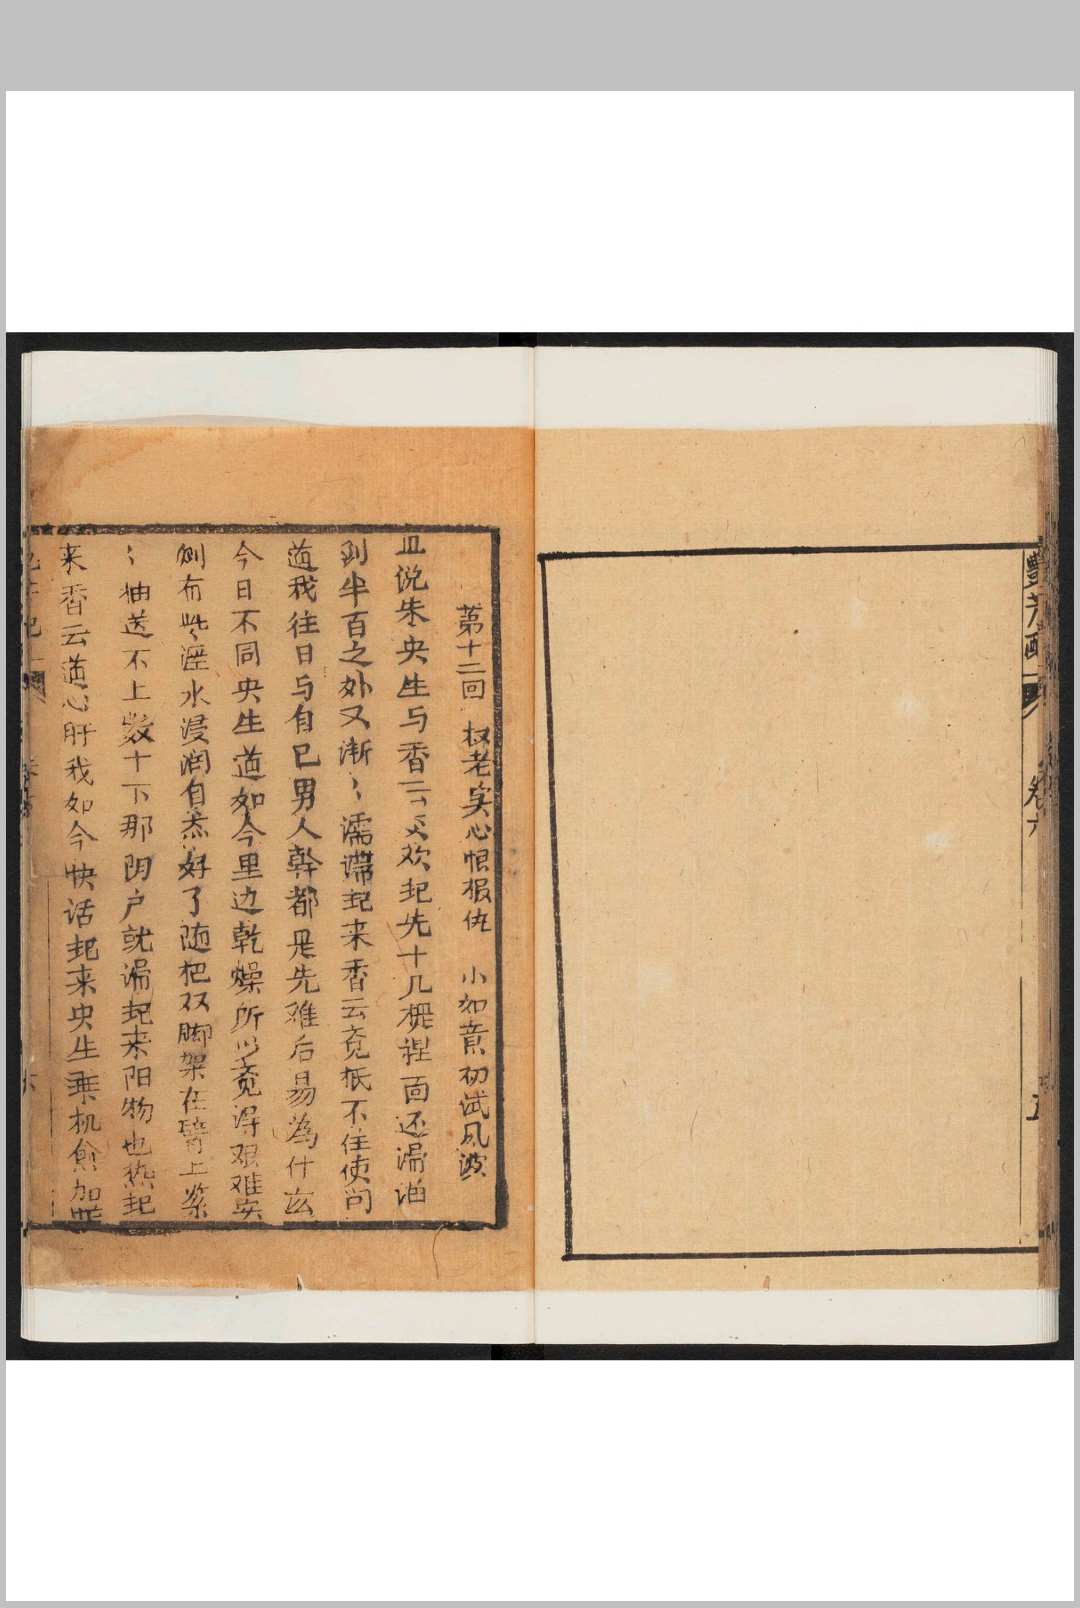 艷芳配
卷六
五
第十二回 权老实心恨报仇 小如意初试风波
且说朱央生与香云交欢起先十几梃裡面还濡泊
到半百之外又渐〻濡滞起来香云竟抵不住使问
道我往日与自已男人幹都是先难后易為什玄
今日不同央生道如今里边乾燥所以竟得艰难实
刚布些〻涯水浸润自然好了随把双脚架在臂上紧
〻抽送不上数十下那阴户就濡起来阳物也热起
来香云道心肝我如今快话起来央生乘机愈加